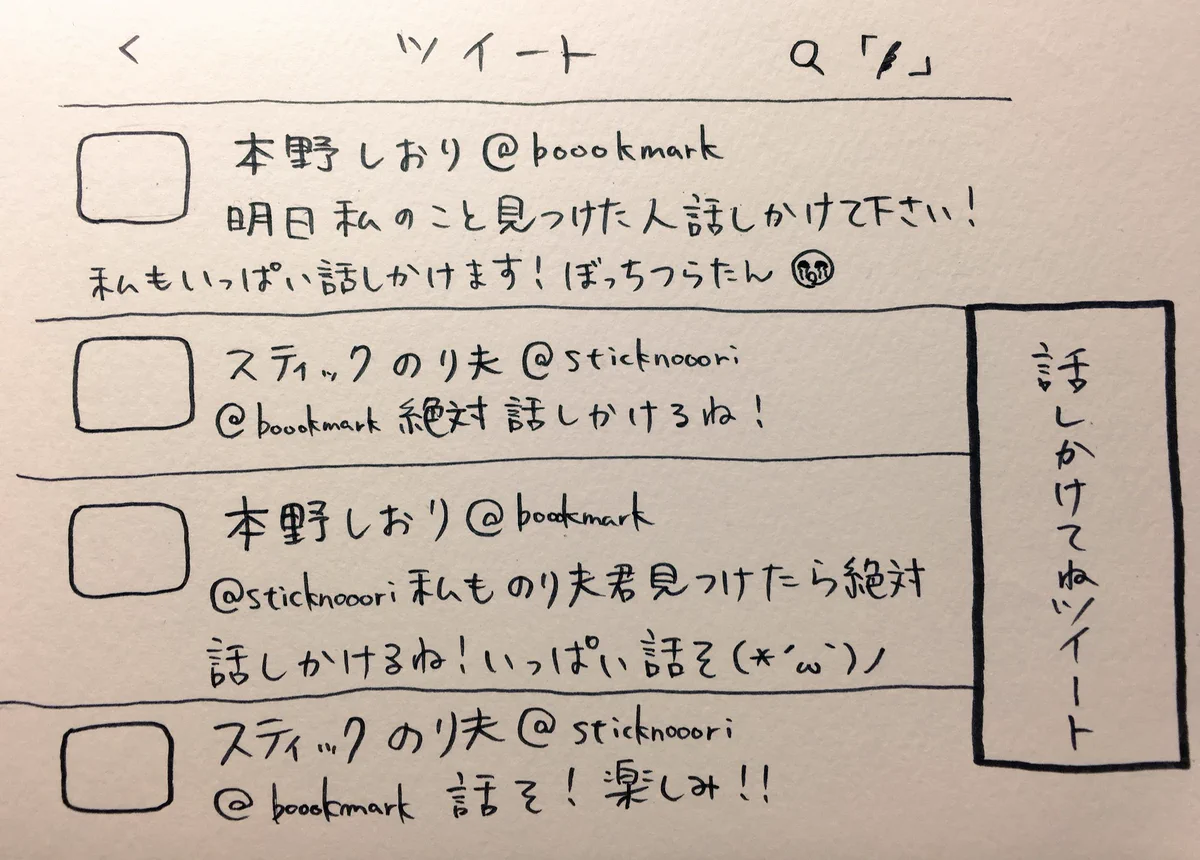 ツイート
本野しおり@boookmark
明日私のこと見つけた人話しかけて下さい!
私もいっぱい話しかけます!ぼっちつらたん😭
スティックのり夫@sticknooori
@boookmark 絶対話しかけるね!
本野しおり@boookmark
@sticknooori 私ものり夫君見つけたら絶対
話しかけるね!いっぱい話そ(*´ω`)ノ
スティックのり夫@sticknooori
@boookmark 話そ!楽しみ!!
話しかけてねツイート